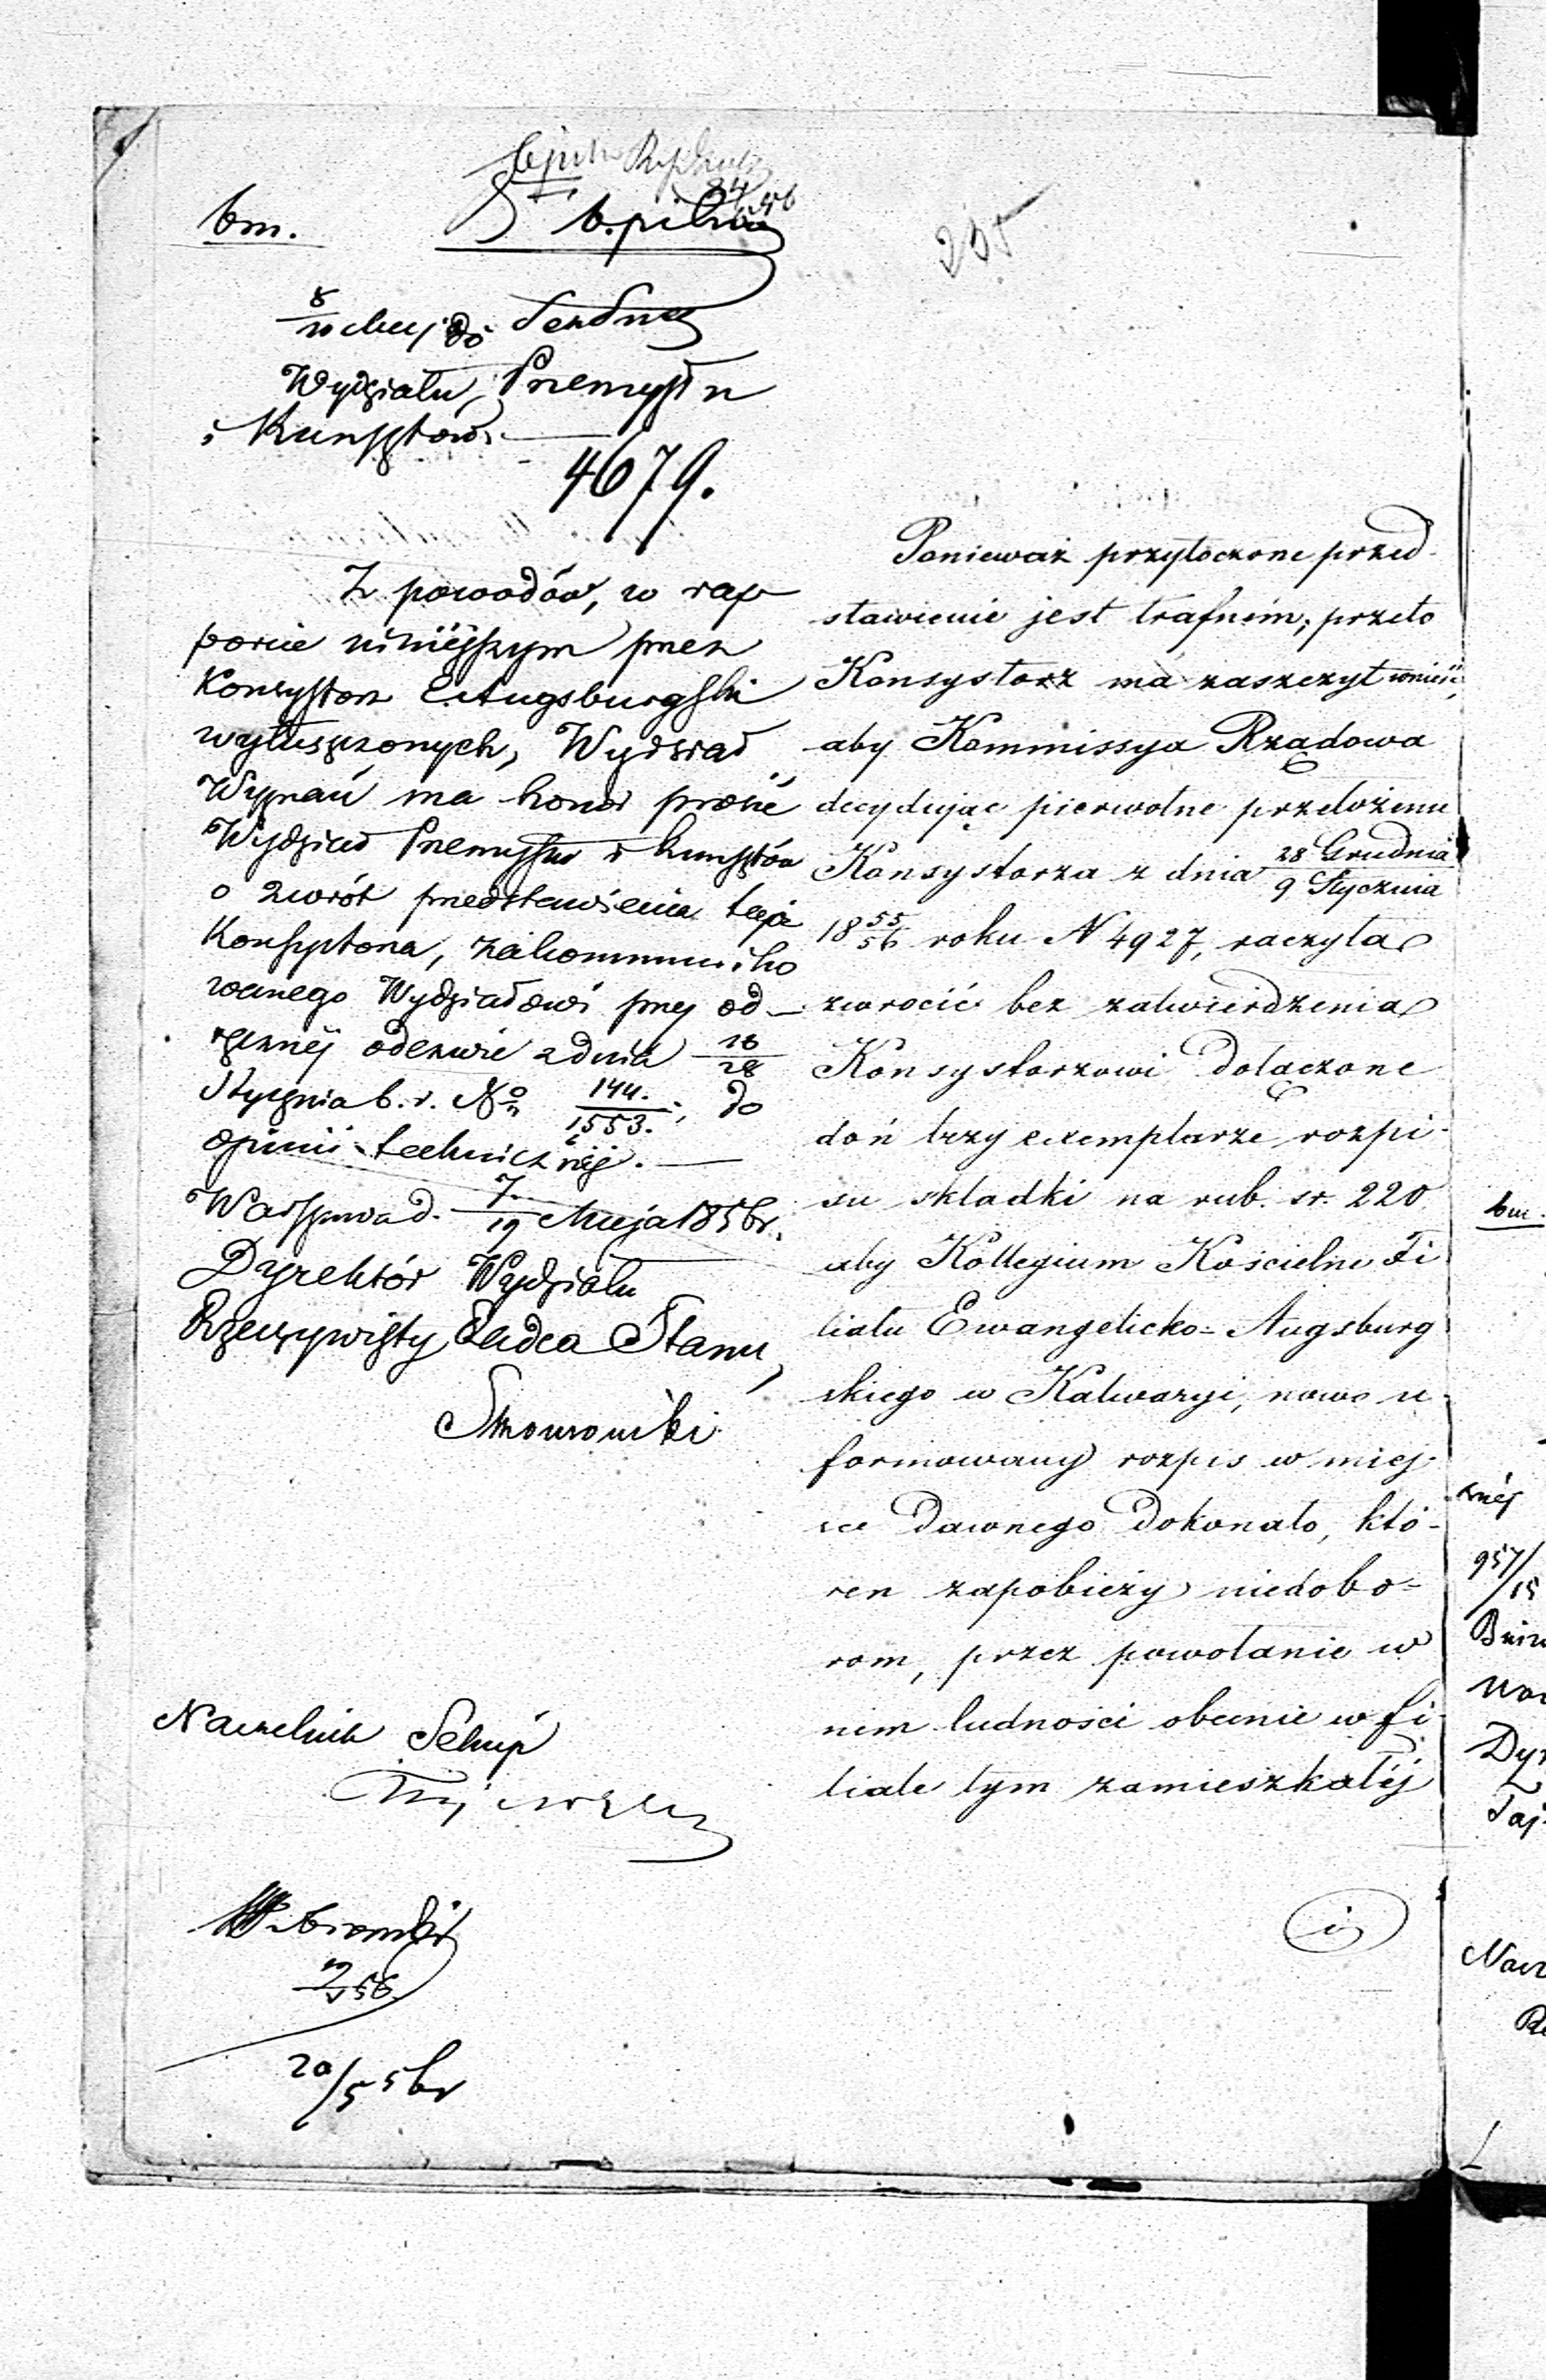 bm.
b. pilno
8/20 Maj do
Wydziału Przemysłu
i Kunsztów.
4679.
Z powodów, w rap
porcie niniejszym przez
Konsystorz E. Augsburgski
wyłuszczonych, Wydział
Wyznań ma honor prosić
Wydział Przemysłu i Kunsztów
o zwrót przedstawienia tegoż
Konsystorza, zakommuniko
wanego Wydziałowi przy od-
ręcznéj odezwie z dnia 16/28
Stycznia b. r. No 144./1553., do
opinii techniczněj.
Warszawa d. 7/19 Maja 1856 r.
Dyrektór Wydziału
Rzeczywisty Radca Stanu,
Naczelnik Sekcyi
20/5 56 r
205
Ponieważ przytoczone przed-
stawienie jest trafném; przeto
Konsystorz ma zaszczyt wnieść,
aby Kommissya Rządowa
decydując pierwotne przedłożenie
Konsystorza z dnia 28 Grudnia/9 Stycznia
18 55/56 roku N 4927, raczyła
zwrocić bez zatwierdzenia
Konsystorzowi dołączone
doń trzy exemplarze rozpi-
su składki na rub. sr. 220
aby Kollegium Kościelne Fi
liału Ewangelicko-Augsburg
skiego w Kalwaryi, nowo u-
formowany rozpis w miej-
sce dawnego dokonało, któ-
ren zapobieży niedobo-
rom, przez powołanie w
nim ludności obecnie w fi-
liale tym zamieszkałéj
i
bm.
957/15